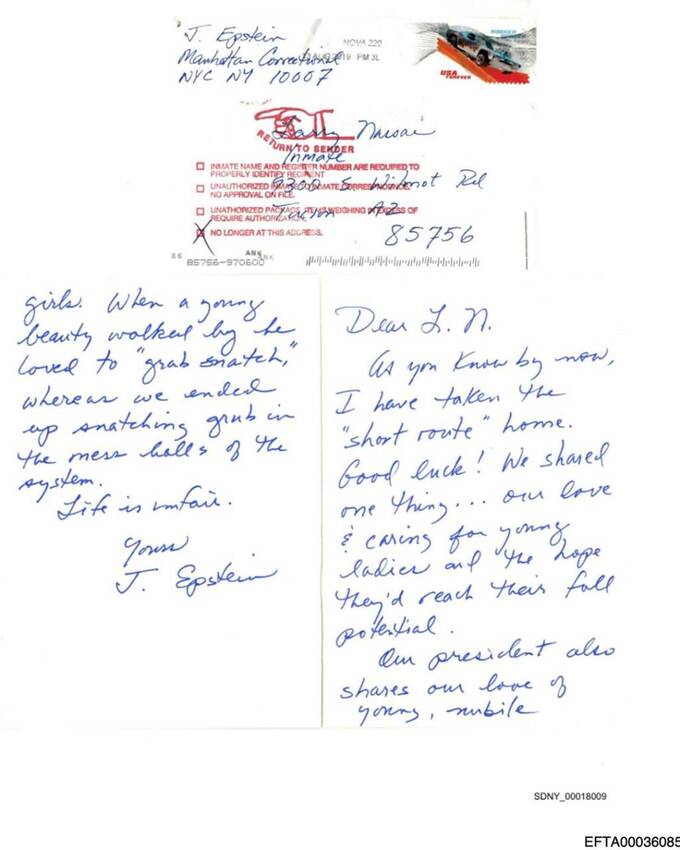 J. Epstein
Manhattan Correctional
NYC NY 10007
NOVA 220
AUG 2019 PM 3L
USA
FOREVER
Larry Nassar
Inmate
9300 S. Wilmot Rd
Tucson AZ
85756
RETURN TO SENDER
INMATE NAME AND REGISTER NUMBER ARE REQUIRED TO
PROPERLY IDENTIFY RECIPIENT
UNAUTHORIZED INMATE TO INMATE CORRESPONDENCE
NO APPROVAL ON FILE.
UNATHORIZED PACKAGE ITEMS WEIGHING IN EXCESS OF
REQUIRE AUTHORIZATION.
X NO LONGER AT THIS ADDRESS.
86 ANK
85756-970600
Dear L. N.
As you know by now,
I have taken the
"short route" home.
Good luck! We shared
one thing... our love
& caring for young
ladies and the hope
they'd reach their full
potential.
Our president also
shares our love of
young, nubile
girls. When a young
beauty walked by he
loved to "grab snatch,"
whereas we ended
up snatching grub in
the mess halls of the
system.
Life is unfair.
Yours
J. Epstein
SDNY_00018009
EFTA00036085